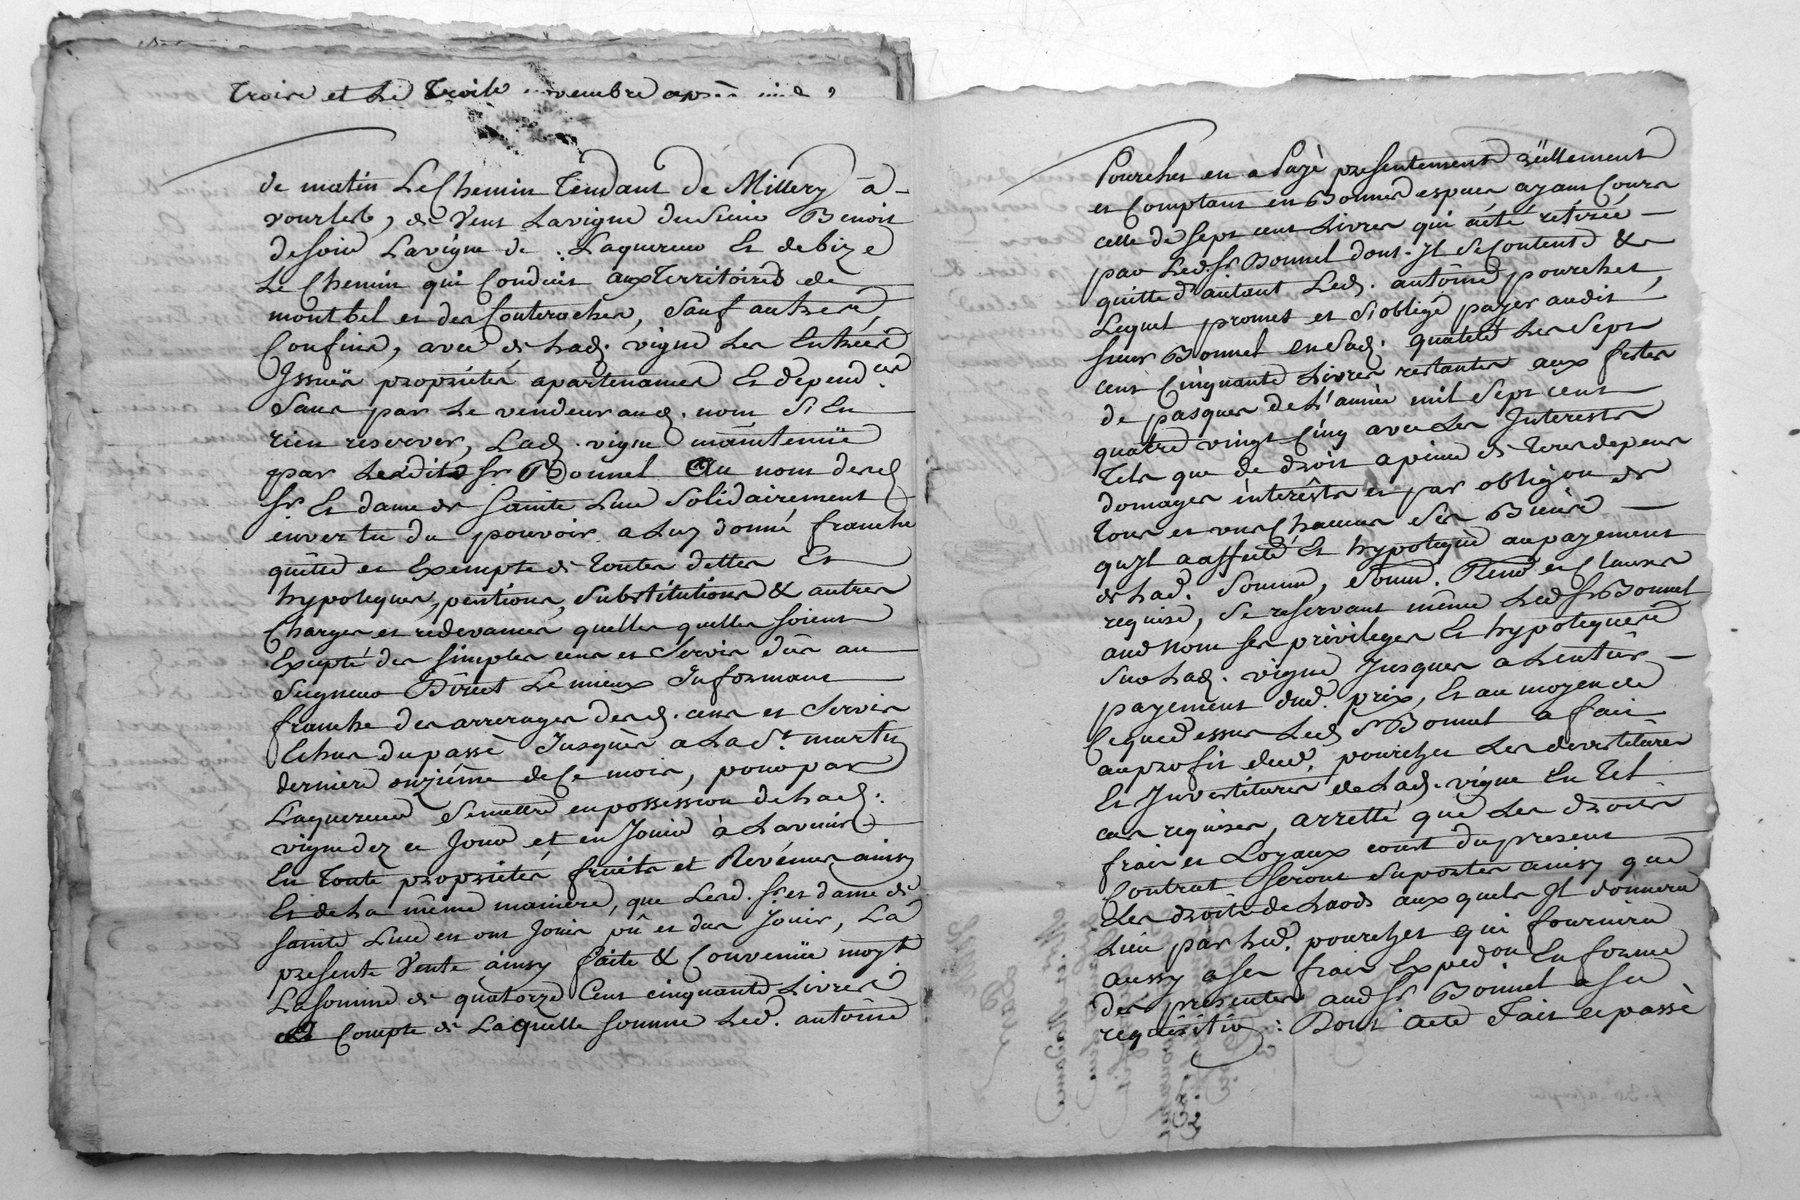 troise et Le Troile novembre après mid
de matin Le Chemin Tendant de Millery à
vourles, de Vent La vigne du Sieur Benoit
de soir La vigne de L'aquereur Et de bize
Le Chemin qui Conduit aux Territoires de
montbel et des Conterocher, sauf autres
Confins, avec de Lad. vigne Les Entrées
Issuës propriétés apartenances Et depend.ces
Sans par Le vendeur aud. nom S'i En
rien reserver, Lad. vigne maintenüe
par Leedits Sr. Bonnel Au nom desd
Sr. Et dame de Sainte Luce Solidairement
en vertu du pouvoir a Luy donné franche
quitte et Exempte de toutes dettes Et
hypoteques, pentions, Substitutions & autres
Charges et redevances quelles quelles soient
Excepté des simples cens et Servis dûs au
Seigneur Direct Le mieux Informant
franche des arrerages desd. cens et Servis
Echus du passé Jusques a La St. martin
derniere onzieme de Ce mois, pour par
L'aquereur Se mettre en possession de Lad.
vigne dez ce Jour et en Jouir à L'avenir
En Toute propriétés fruits et Revénus ainsy
Et de La même maniere, que Lesd. Sr. et dame de
Sainte Luce en ont Joüis pû et dus Jouir, La
presente Vente ainsy faite & Convenüe moy.t
La somme de quatorze Cent cinquante Livres
a Compte de Laquelle somme Led. antoine
Pourchet en a Payé presentement réellement
et Comptant en Bonnes espeses ayant Cours
celle de Sept cent Livres qui a été retirée
par Led. Sr. Bonnel dont Il Se Contente &
quitte d'autant Led. antoine pourchet,
Lequel promet et s'oblige payer audit
Sieur Bonnel en Sad. qualité Les Sept
cent Cinquante Livres restantes aux festes
de pasques de L'année mil Sept cent
quatre vingt Cinq avec Les Interests
Tels que de droit a peine de tous depens
domages interêsts et par obligõn de
Tous et uns Chacuns Ses Biens
qu'Il a affecté Et hypoteque au payement
de Lad. Somme, Soum. Renõ et Clauses
requise, Se reservant même Led. Sr. Bonnel
aud nom Ses privileges Et hypoteques
Sur Lad. vigne Jusques a L'entier
payement dud. prix, Et au moyen de
Ce que dessus Led. Sr Bonnel a fait
au profit dud. pourchet Les devestitures
Et Investitures de Lad. vigne En Tel
cas requises, arretté que Les droits
frais et Loyaux cout du present
Contrat Seront Suportés ainsy que
Les droits de Laods auxquels Il donnera
Lieu par Led. pourchet qui fournira
aussy a Ses frais Expedõn En forme
des presentes aud Sr. Bonnel a sa
requisition : Dont acte Fait et passé